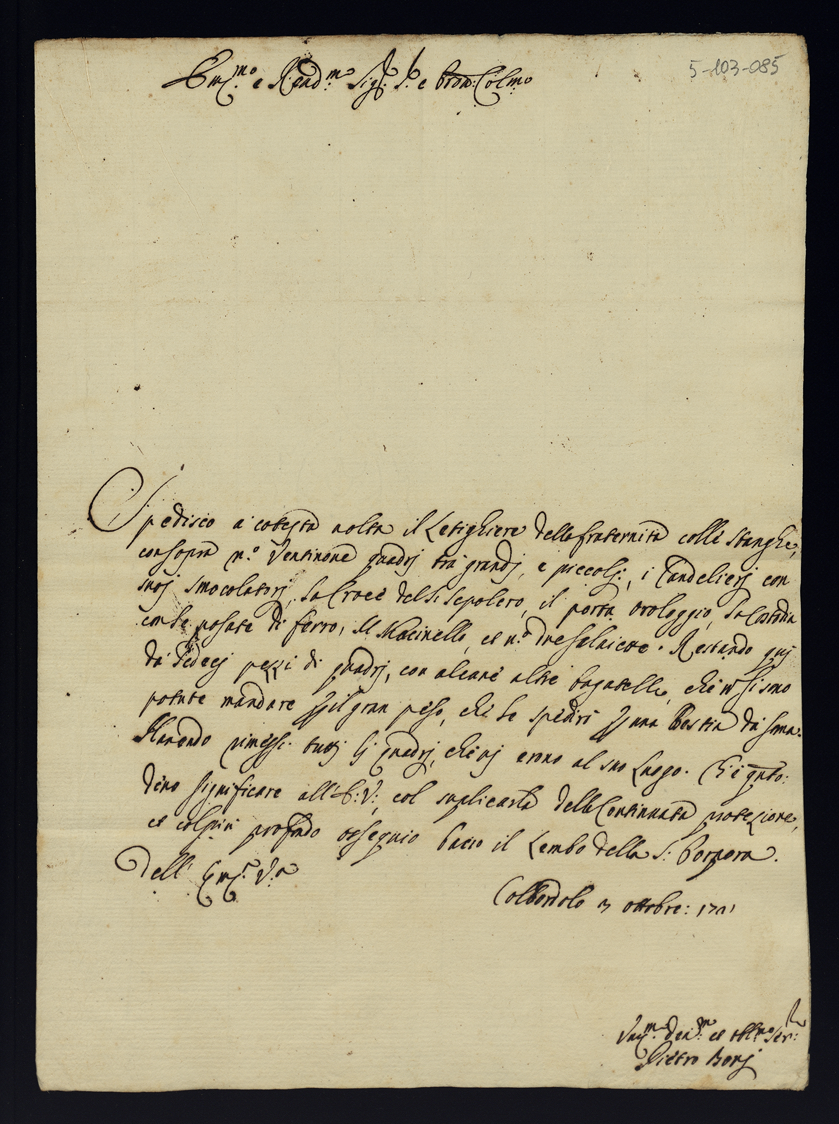 Em.mo e Rend.mo Sig.r P. e Pron: Colmo
5-103-085
Spedisco a cotesta volta il Letighiere della fraternita colle stanghe,
con sopra n.o Ventinone quadrj trà grandj, e piccolj:, i Candelierj con
suoj smocolatorj, la Croce del S: Sepolcro, il porta orologgio, la Custodia
con le posate di ferro, il Macinello, et n.o due salaiere. Restando quj
da sedecj pezzi di quadrj, con alcane altre bagatelle, che si sono
potute mandare il gran peso, che le spedirò una Bestia da soma.
Havendo rimessi tuttj lj quadrj, che vj erono al suo Luogo. Ch'è qnto:
devo significare all'E:V:, col suplicarla della Continuata protezione,
et col più profondo ossequio bacio il Lembo della S: Porpora.
Dell' Em: V.a
Colbordolo 3 ottobre: 1721
Um.mo Dev.mo et obl.mo Ser.:
Pietro Bonj